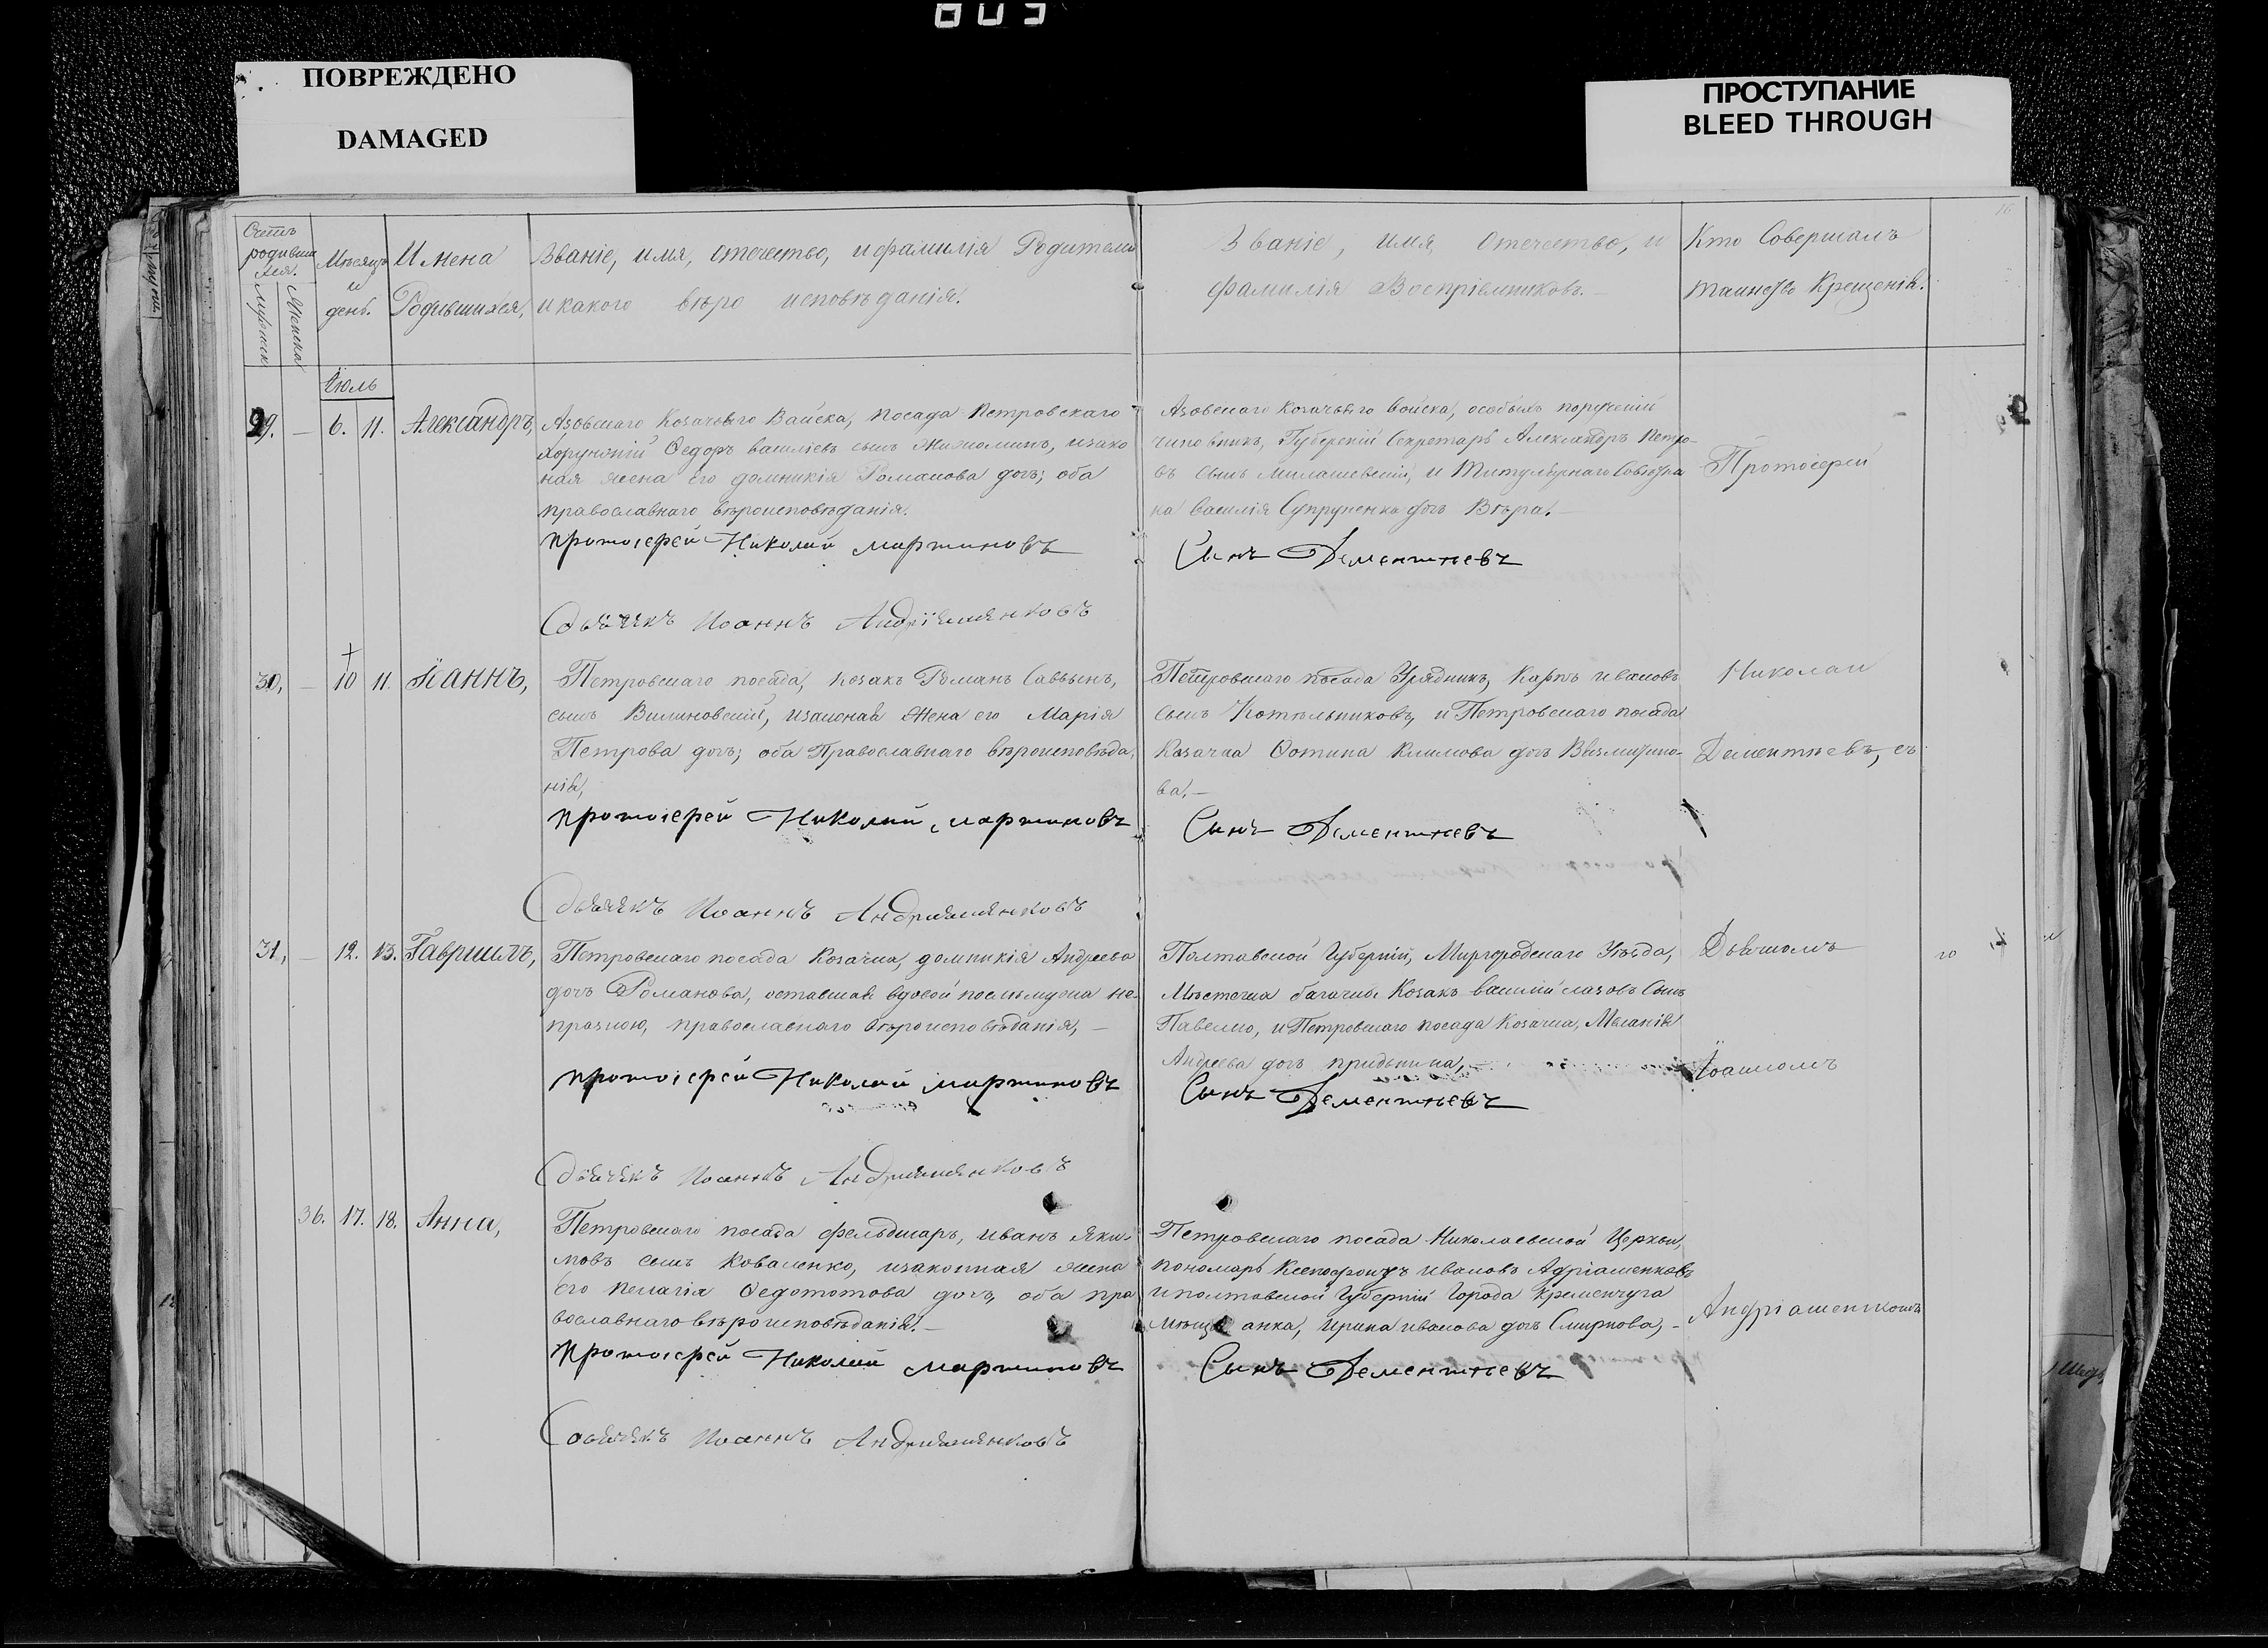 803
ПОВРЕЖДЕНО
DAMAGED
ПРОСТУПАНИЕ
BLEED THROUGH
16
Счетъ родившихся.
Мужеска
Женска
Мѣсяцъ и день.
Имена
Родившихся,
Званіе, имя, отечество, и фамилія Родителей
и какого вѣро исповѣданія.
Званіе, имя, отечество, и
фамилія Воспріемниковъ.
Кто Совершалъ
таинство Крещенія.
Іюль
29. — 6. 11. Александръ,
Азовскаго Козачьяго Вайска, посада Петровскаго
Хорунжій Ѳедоръ василіевъ сынъ, изако
ная жена его домникія Романова дочь; оба
православнаго вѣроисповѣданія.
протоіерей Николай мартиновъ
Дьячекъ Иоаннъ
Азовскаго Козачьяго Войска, особыхъ порученій
чиновникъ, Губернскій Секретарь Александръ Петро-
въ сынъ Милашевскій, и Титулярнаго Совѣтни
ка василія Супруненка дочь Вѣра.
Сынъ Дементьевъ
Протоіерей
30, — 10 11. Іоаннъ,
Петровскаго посада, козакъ Романъ Саввинъ,
сынъ Вилиновскій, изаконая жена его Марія
Петрова дочь; оба Православнаго вѣроисповѣда,
нія,
протоіерей Николай мартиновъ
Дьячекъ Иоаннъ
Петровскаго посада Урядникъ, Карпъ ивановъ
сынъ Котѣльниковъ, и Петровскаго посада
Козачка Фотина Климова дочь
ва.—
Сынъ Дементьевъ
Николай
Дементьевъ, съ
31, — 12. 13. Гавріилъ,
Петровскаго посада Козачка, домникія Андреева
дочь Романова, оставшая вдовой послѣ мужа не-
празною, православнаго вѣроисповѣданія, —
протоіерей Николай мартиновъ
Дьячекъ Иоаннъ
Полтавской Губерніи, Миргородскаго Уѣзда,
Мѣстечка багачки Козакъ василій лазовъ Сынъ
Павелко, и Петровскаго посада Козачка, Меланія
Андреева дочь
Сынъ Дементьевъ
Дьячкомъ
Іоанномъ
36. 17. 18. Анна,
Петровскаго посада фельдшаръ, иванъ Яки-
мовъ сынъ Коваленко, изаконная жена
его пелагія дочь, оба пра
вославнаго вѣроисповѣданія.—
протоіерей Николай мартиновъ
Дьячекъ Иоаннъ
Петровскаго посада Николаевской Церкви,
пономарь Ксенофонтъ ивановъ Адріашенковъ
и полтавской Губерніи Города Кременчуга
мѣщ анка, ирина иванова дочь Смирнова, -
Сынъ Дементьевъ
Андріашенковымъ